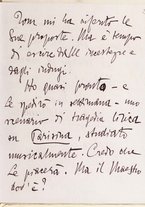 Dom mi ha riferito le
Sue proposte. Ma è tempo
di uscire dalle incertezze e
dagli indugi.
Ho quasi pronto - e
le spedirò in settimana - uno
scenario di tragedia lirica
su Parisina, studiato
musicalmente. Credo che
Le piacerà. Ma il Maestro
dov'è?